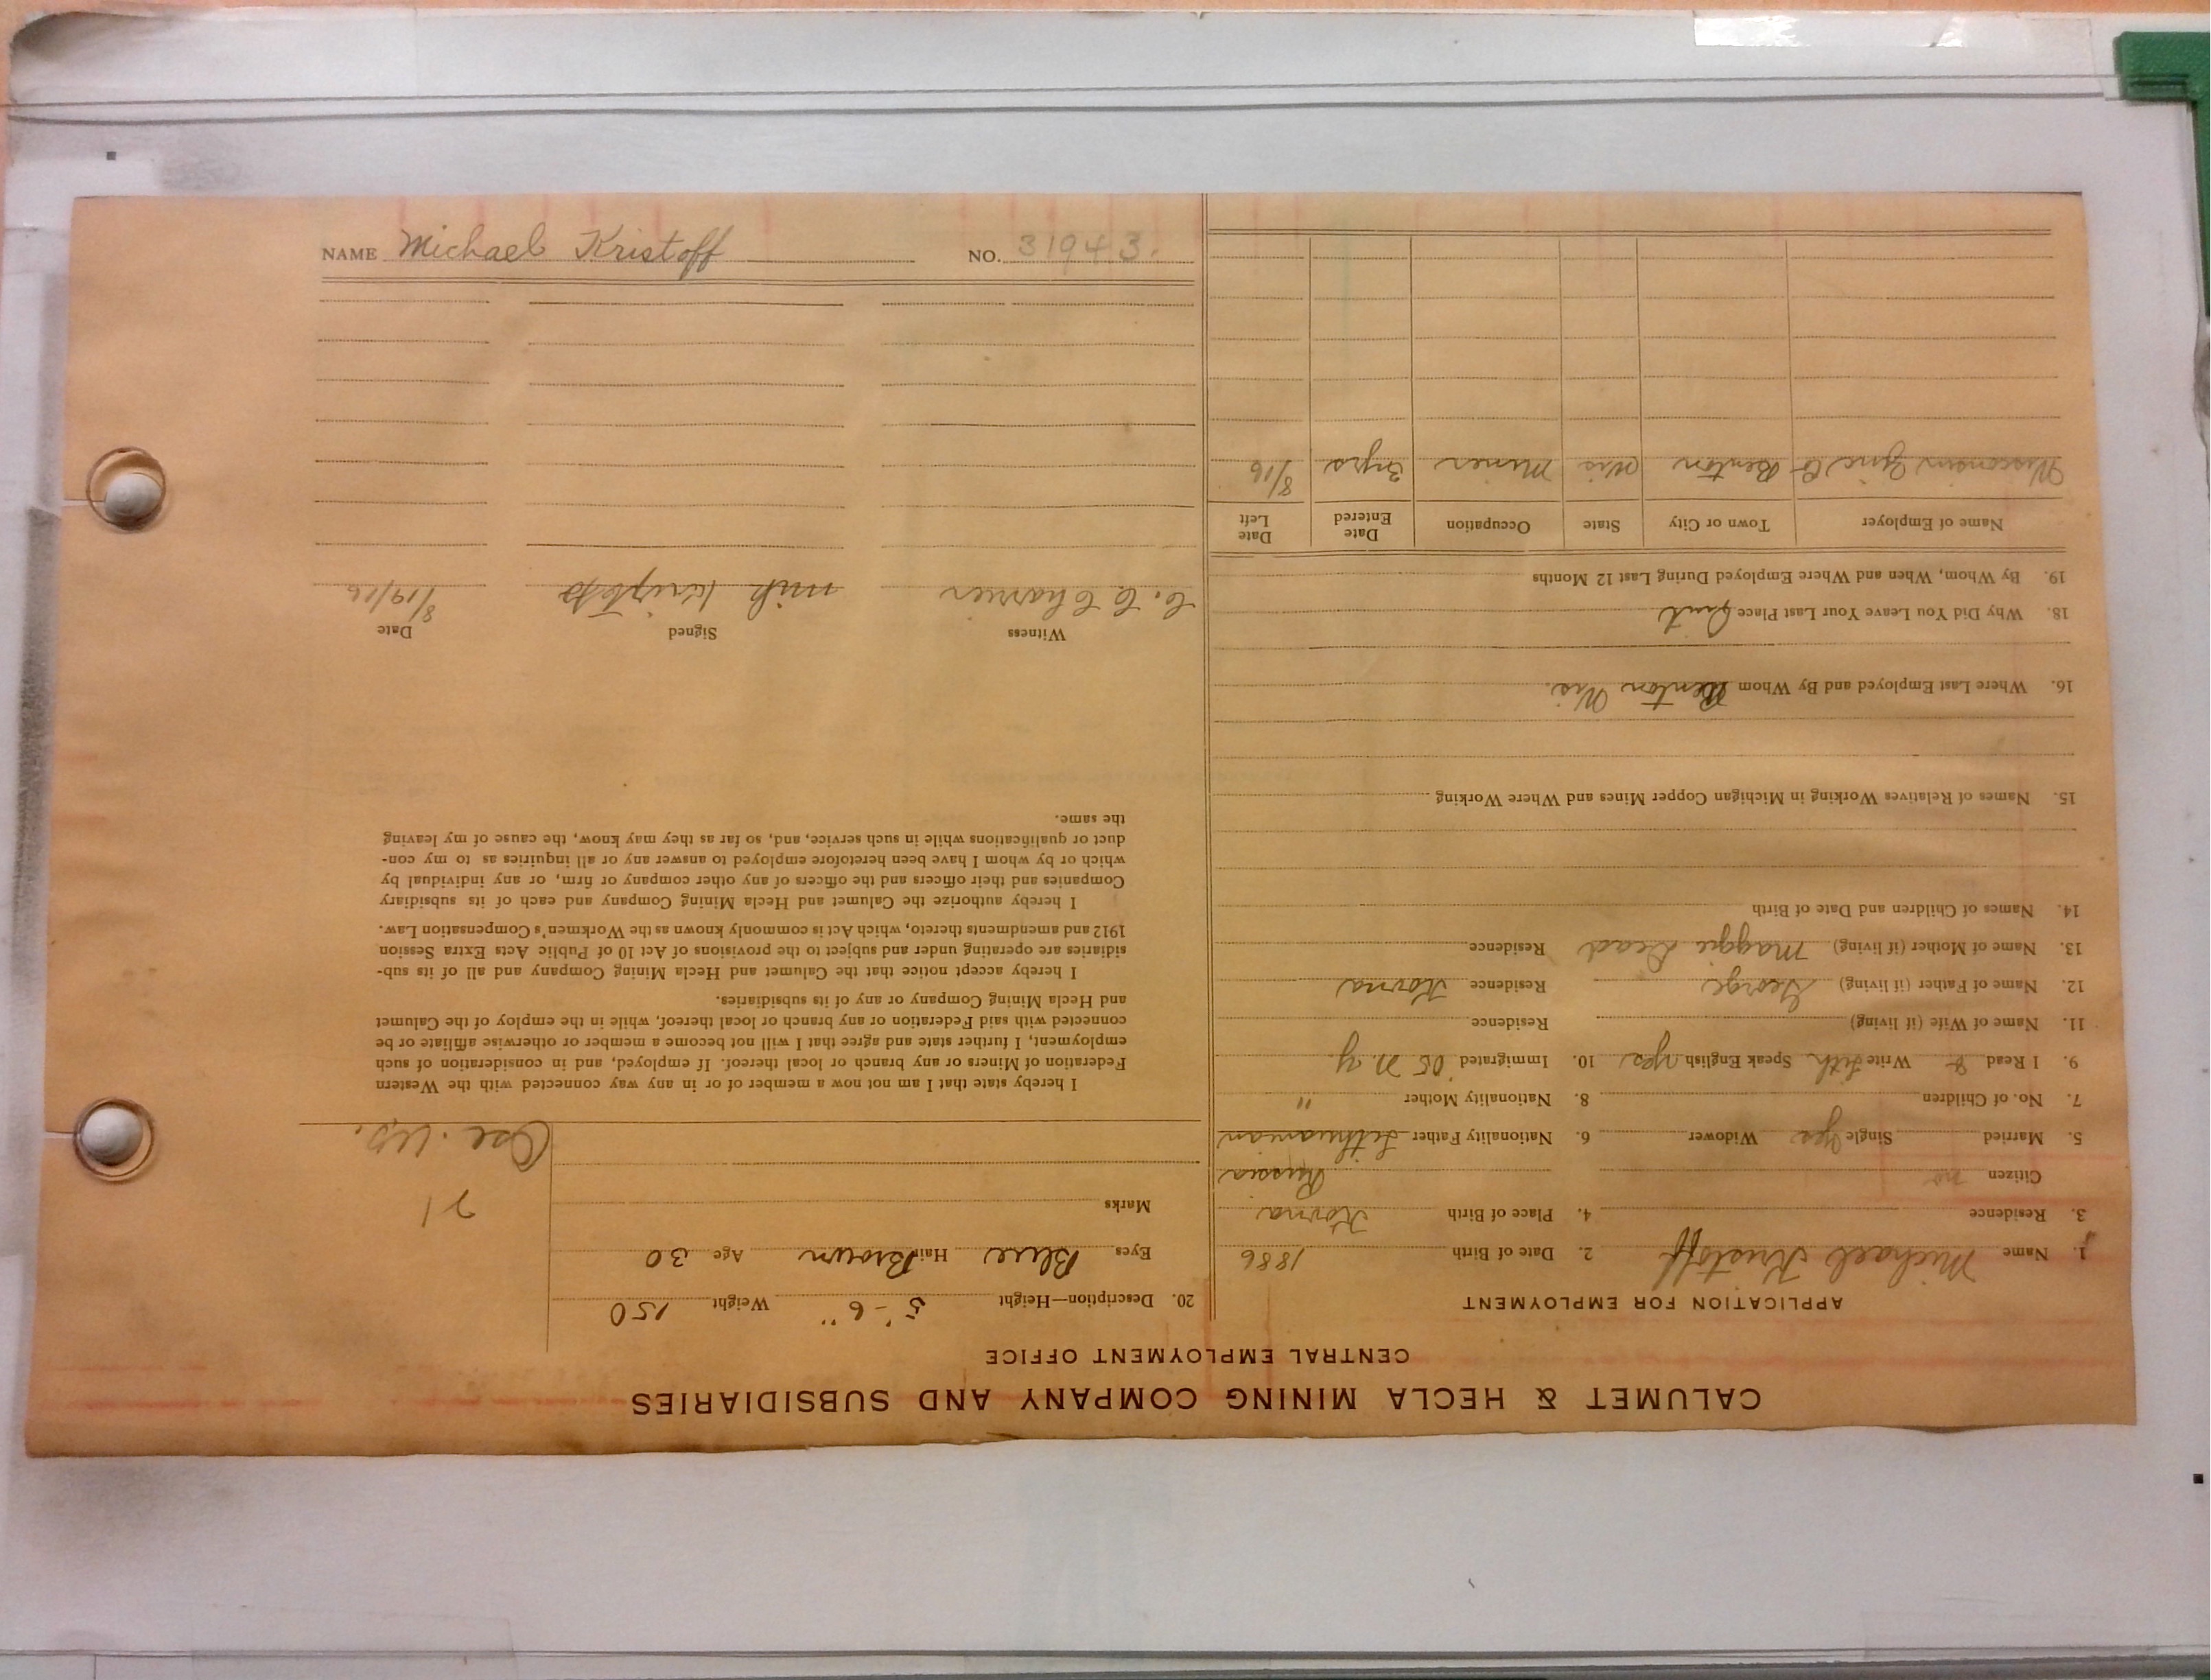 CALUMET & HECLA MINING COMPANY AND SUBSIDIARIES
CENTRAL EMPLOYMENT OFFICE
APPLICATION FOR EMPLOYMENT
1. Name Michael Kristoff 2. Date of Birth 1886
3. Residence 4. Place of Birth Kovna
Citizen no Russia
5. Married Single yes Widower 6. Nationality Father Lithuanian
7. No. of Children 8. Nationality Mother "
9. I Read & Write Lith Speak English yes 10. Immigrated '05 N.Y.
11. Name of Wife (if living) Residence
12. Name of Father (if living) George Residence Kovna
13. Name of Mother (if living) Maggie Dead Residence
14. Names of Children and Date of Birth
15. Names of Relatives Working in Michigan Copper Mines and Where Working
16. Where Last Employed and By Whom Benton Wis.
18. Why Did You Leave Your Last Place Quit
19. By Whom, When and Where Employed During Last 12 Months
Name of Employer Town or City State Occupation Date Entered Date Left
Wisconsin Zinc Co Benton Wis Miner 3 yrs 8/16
20. Description—Height 5'-6" Weight 150
Eyes Blue Hair Brown Age 30
Marks
71
Osc. Up.
I hereby state that I am not now a member of or in any way connected with the Western
Federation of Miners or any branch or local thereof. If employed, and in consideration of such
employment, I further state and agree that I will not become a member or otherwise affiliate or be
connected with said Federation or any branch or local thereof, while in the employ of the Calumet
and Hecla Mining Company or any of its subsidiaries.
I hereby accept notice that the Calumet and Hecla Mining Company and all of its sub-
sidiaries are operating under and subject to the provisions of Act 10 of Public Acts Extra Session
1912 and amendments thereto, which Act is commonly known as the Workmen's Compensation Law.
I hereby authorize the Calumet and Hecla Mining Company and each of its subsidiary
Companies and their officers and the officers of any other company or firm, or any individual by
which or by whom I have been heretofore employed to answer any or all inquiries as to my con-
duct or qualifications while in such service, and, so far as they may know, the cause of my leaving
the same.
Witness Signed Date
C. C. Charrier 8/19/16
NAME Michael Kristoff NO. 31943.